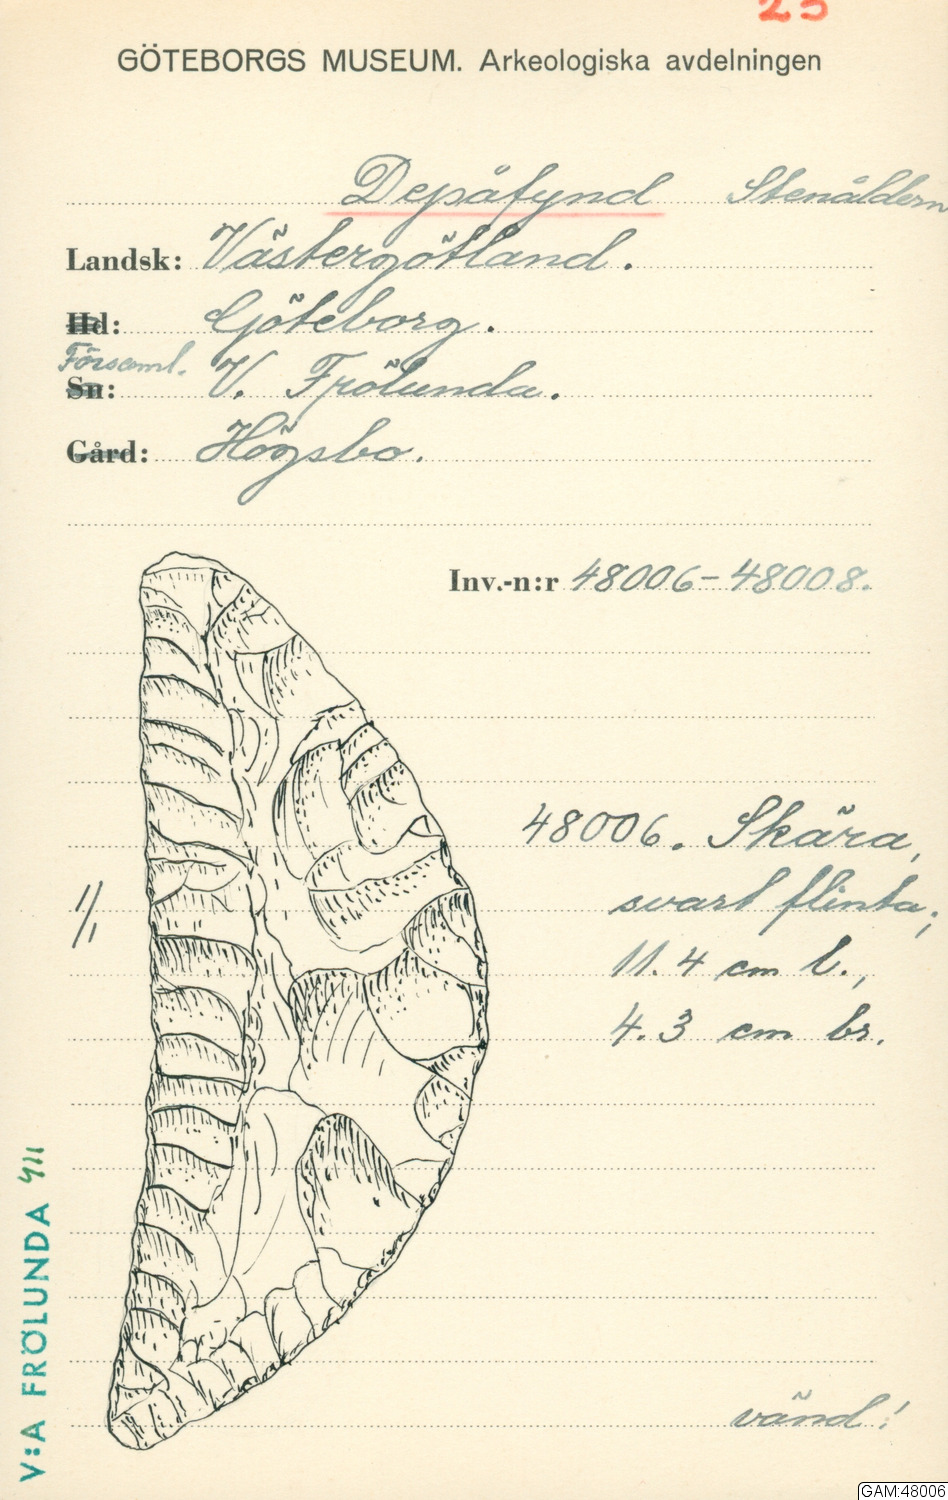 23
GÖTEBORGS MUSEUM. Arkeologiska avdelningen
Depåfynd Stenåldern
Landsk: Västergötland.
Hd: Göteborg.
Församl.
Sn: V. Frölunda.
Gård: Högsbo.
Inv.-n:r 48006-48008.
48006. Skära,
svart flinta;
11.4 cm l.,
4.3 cm br.
1/1
V:A FRÖLUNDA 411
vänd!
GAM:48006